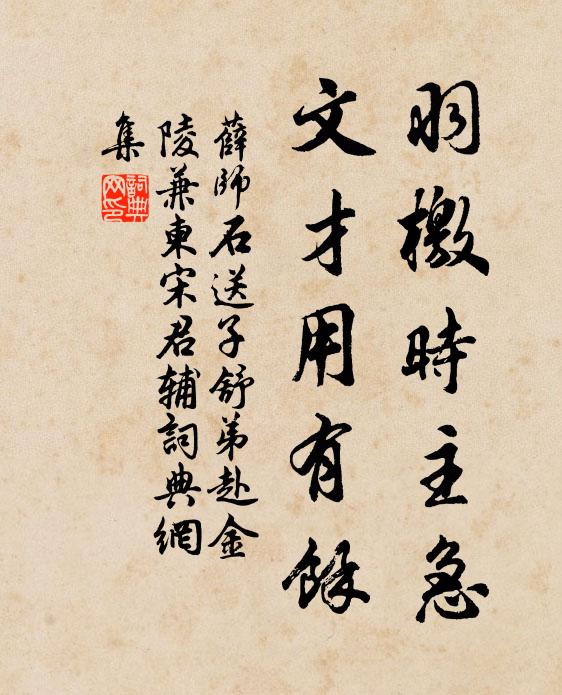 羽檄時主急
文才用有餘
薛師石送子舒弟赴金
陵兼柬宋君辅詞典網
集
詞典網印